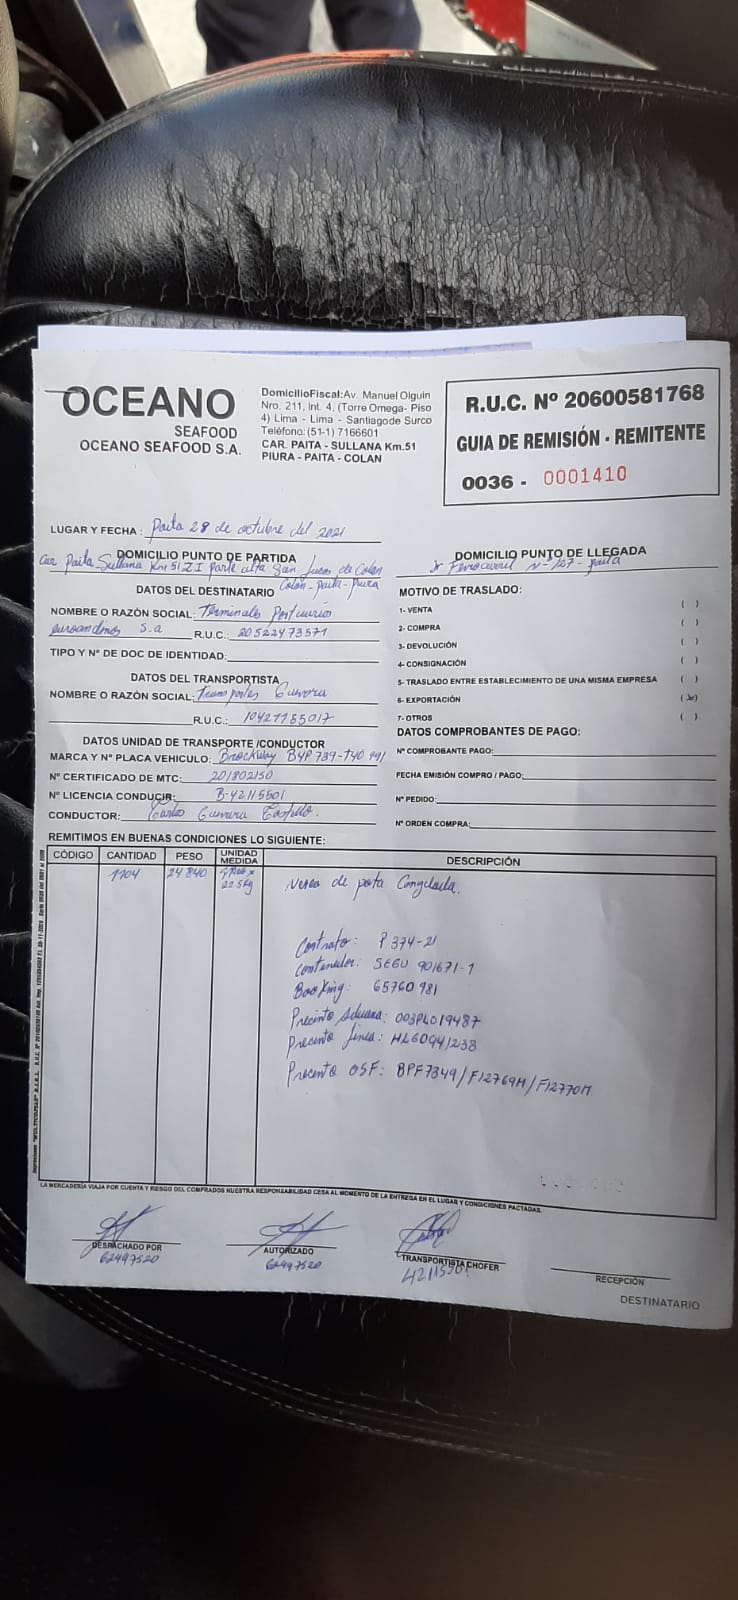 OCEANO
SEAFOOD
OCEANO SEAFOOD S.A.
DomicilioFiscal:Av. Manuel Olguin
Nro. 211, Int. 4, (Torre Omega- Piso
4) Lima - Lima - Santiagode Surco
Teléfono: (51-1) 7166601
CAR. PAITA - SULLANA Km.51
PIURA - PAITA - COLAN
R.U.C. Nº 20600581768
GUIA DE REMISIÓN - REMITENTE
0036 - 0001410
LUGAR Y FECHA : Paita 28 de octubre del 2021
DOMICILIO PUNTO DE PARTIDA
Car. Paita Sullana Km 51 Z.I parte alta San Lucas de Colan
Colan - Paita - Piura
DOMICILIO PUNTO DE LLEGADA
Jr Ferrocarril Nº 127 - paita
DATOS DEL DESTINATARIO
NOMBRE O RAZÓN SOCIAL: Terminales Portuarios
euroandinos S.a R.U.C.: 20522473571
TIPO Y Nº DE DOC DE IDENTIDAD:
MOTIVO DE TRASLADO:
1- VENTA ( )
2- COMPRA ( )
3- DEVOLUCIÓN ( )
4- CONSIGNACIÓN ( )
5- TRASLADO ENTRE ESTABLECIMIENTO DE UNA MISMA EMPRESA ( )
6- EXPORTACIÓN (x)
7- OTROS ( )
DATOS DEL TRANSPORTISTA
NOMBRE O RAZÓN SOCIAL: Transportes Guevara
R.U.C.: 10421155017
DATOS COMPROBANTES DE PAGO:
Nº COMPROBANTE PAGO:
FECHA EMISIÓN COMPRO / PAGO:
Nº PEDIDO:
Nº ORDEN COMPRA:
DATOS UNIDAD DE TRANSPORTE /CONDUCTOR
MARCA Y Nº PLACA VEHICULO: Brockway BYP 739 - T40 991
Nº CERTIFICADO DE MTC: 201802150
Nº LICENCIA CONDUCIR: B-42115501
CONDUCTOR: Carlos Guevara Castillo.
REMITIMOS EN BUENAS CONDICIONES LO SIGUIENTE:
CÓDIGO CANTIDAD PESO UNIDAD MEDIDA DESCRIPCIÓN
1104 24 840 22.5 Kg
Nuca de pota Congelada.
Contrato: P 374-21
Contenedor: SEGU 901671-1
Booking: 65760981
Precinto Aduana: 003PL019487
Precinto linea: HLG0941238
Precinto OSF: BPF7349/F12769M/F12770M
LA MERCADERÍA VIAJA POR CUENTA Y RIESGO DEL COMPRADOS NUESTRA RESPONSABILIDAD CESA AL MOMENTO DE LA ENTREGA EN EL LUGAR Y CONDICIONES PACTADAS.
DESPACHADO POR
62497520
AUTORIZADO
62497520
TRANSPORTISTA CHOFER
RECEPCIÓN
DESTINATARIO